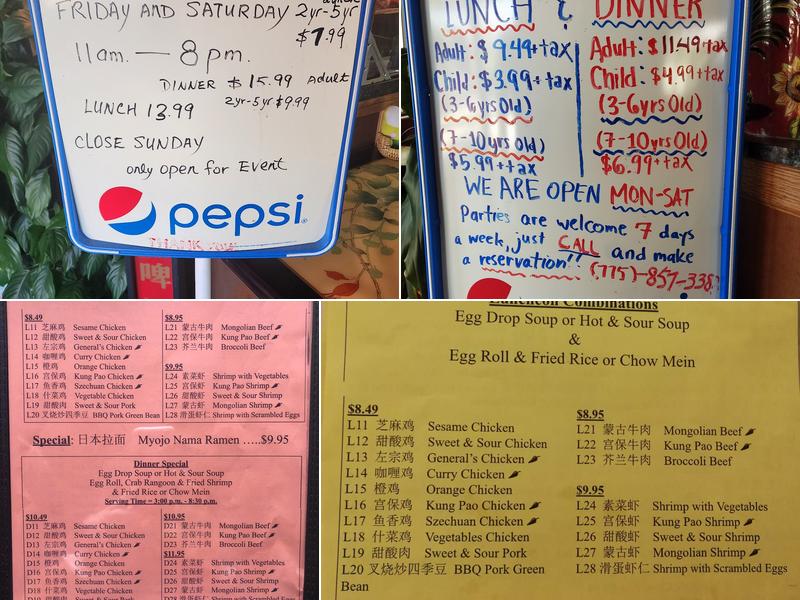 FRIDAY AND SATURDAY 2yr-5yr
$7.99
11am. — 8pm.
DINNER $15.99 Adult
2yr-5yr $9.99
LUNCH 13.99
CLOSE SUNDAY
only open for Event
pepsi
THANK YOU
LUNCH & DINNER
Adult: $9.49+tax
Child: $3.99+tax
(3-6yrs Old)
(7-10yrs Old)
$5.99+tax
Adult: $11.49+tax
Child: $4.99+tax
(3-6yrs Old)
(7-10yrs Old)
$6.99+tax
WE ARE OPEN MON-SAT
Parties are welcome 7 days
a week, just CALL and make
a reservation!! (775)-857-338
啤
$8.49
L11 芝麻鸡 Sesame Chicken
L12 甜酸鸡 Sweet & Sour Chicken
L13 左宗鸡 General's Chicken
L14 咖喱鸡 Curry Chicken
L15 橙鸡 Orange Chicken
L16 宫保鸡 Kung Pao Chicken
L17 鱼香鸡 Szechuan Chicken
L18 什菜鸡 Vegetables Chicken
L19 甜酸肉 Sweet & Sour Pork
L20 叉烧炒四季豆 BBQ Pork Green Bean
$8.95
L21 蒙古牛肉 Mongolian Beef
L22 宫保牛肉 Kung Pao Beef
L23 芥兰牛肉 Broccoli Beef
$9.95
L24 素菜虾 Shrimp with Vegetables
L25 宫保虾 Kung Pao Shrimp
L26 甜酸虾 Sweet & Sour Shrimp
L27 蒙古虾 Mongolian Shrimp
L28 滑蛋虾仁 Shrimp with Scrambled Eggs
Special: 日本拉面 Myojo Nama Ramen …..$9.95
Dinner Special
Egg Drop Soup or Hot & Sour Soup
Egg Roll, Crab Rangoon & Fried Shrimp
& Fried Rice or Chow Mein
Serving Time = 3:00 p.m. - 8:30 p.m.
$10.49
D11 芝麻鸡 Sesame Chicken
D12 甜酸鸡 Sweet & Sour Chicken
D13 左宗鸡 General's Chicken
D14 咖喱鸡 Curry Chicken
D15 橙鸡 Orange Chicken
D16 宫保鸡 Kung Pao Chicken
D17 鱼香鸡 Szechuan Chicken
D18 什菜鸡 Vegetables Chicken
$10.95
D21 蒙古牛肉 Mongolian Beef
D22 宫保牛肉 Kung Pao Beef
D23 芥兰牛肉 Broccoli Beef
$11.95
D24 素菜虾 Shrimp with Vegetables
D25 宫保虾 Kung Pao Shrimp
D26 甜酸虾 Sweet & Sour Shrimp
D27 蒙古虾 Mongolian Shrimp
D28 滑蛋虾仁 Shrimp with Scrambled Eggs
Luncheon Combinations
Egg Drop Soup or Hot & Sour Soup
&
Egg Roll & Fried Rice or Chow Mein
$8.49
L11 芝麻鸡 Sesame Chicken
L12 甜酸鸡 Sweet & Sour Chicken
L13 左宗鸡 General's Chicken
L14 咖喱鸡 Curry Chicken
L15 橙鸡 Orange Chicken
L16 宫保鸡 Kung Pao Chicken
L17 鱼香鸡 Szechuan Chicken
L18 什菜鸡 Vegetables Chicken
L19 甜酸肉 Sweet & Sour Pork
L20 叉烧炒四季豆 BBQ Pork Green
Bean
$8.95
L21 蒙古牛肉 Mongolian Beef
L22 宫保牛肉 Kung Pao Beef
L23 芥兰牛肉 Broccoli Beef
$9.95
L24 素菜虾 Shrimp with Vegetables
L25 宫保虾 Kung Pao Shrimp
L26 甜酸虾 Sweet & Sour Shrimp
L27 蒙古虾 Mongolian Shrimp
L28 滑蛋虾仁 Shrimp with Scrambled Eggs